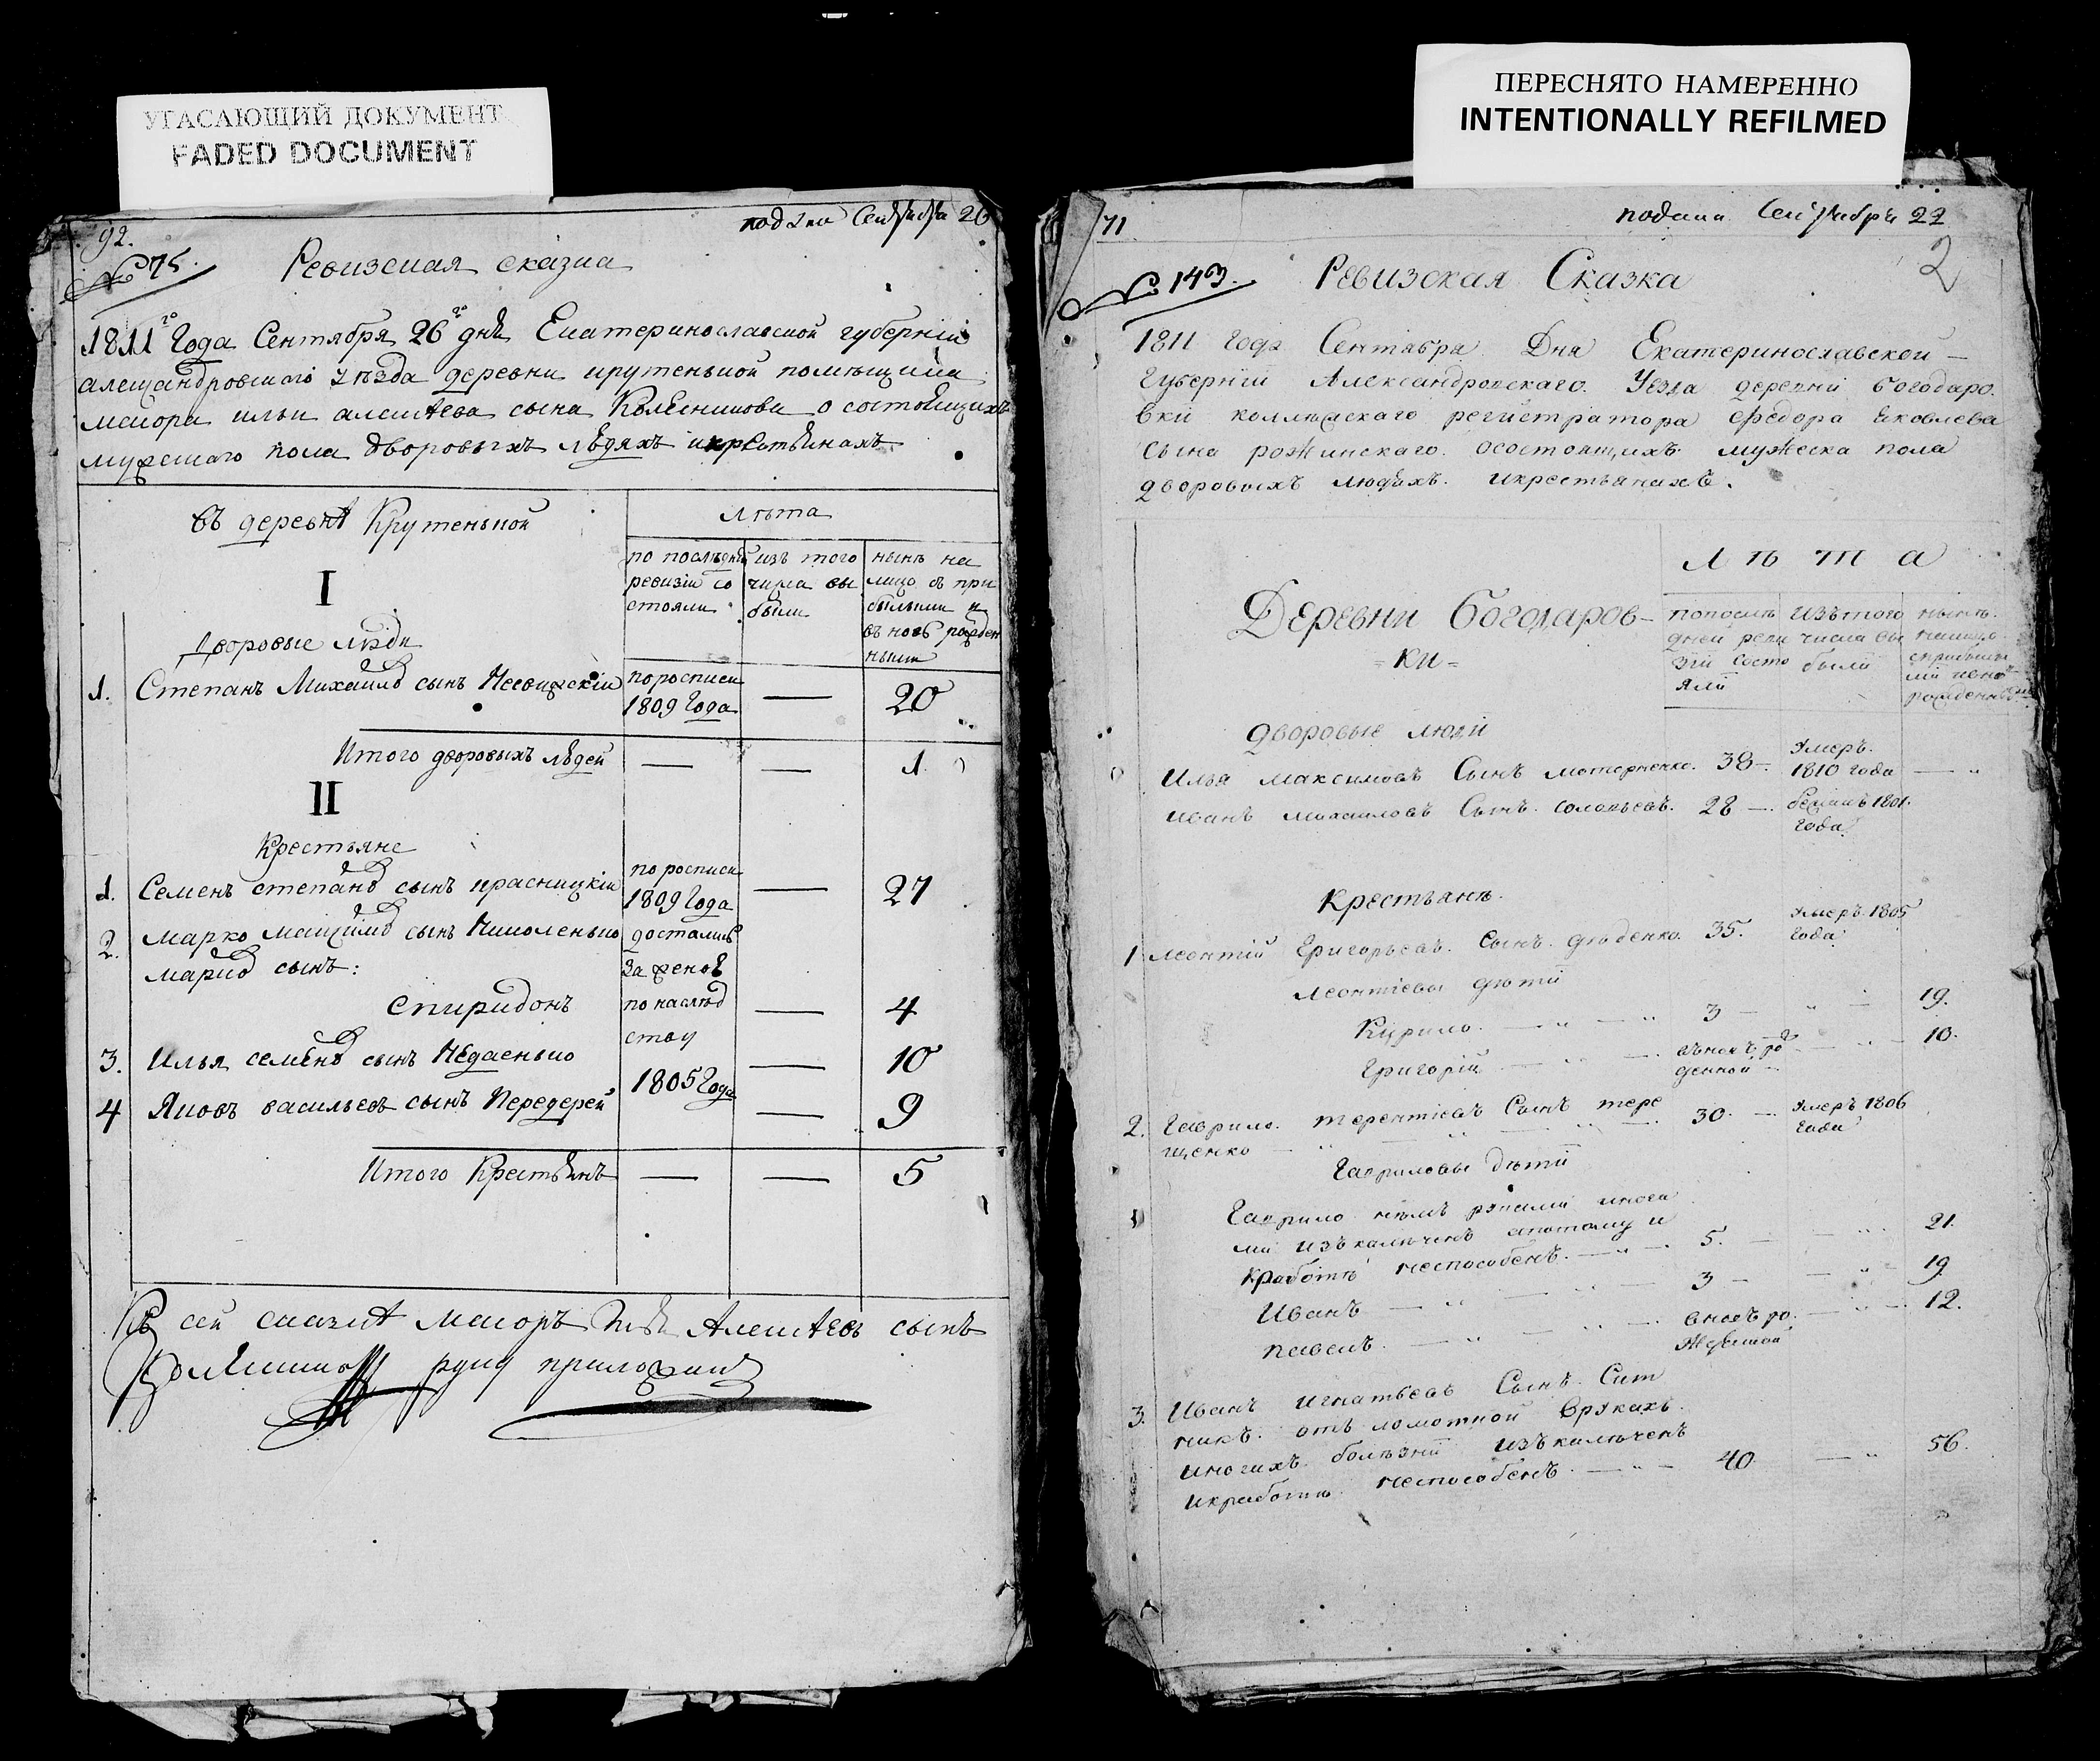 УГАСАЮЩИЙ ДОКУМЕНТ
FADED DOCUMENT
92.
подано Сентября 26
№ 75.
Ревизская сказка
1811го Года Сентября 26го дня Екатеринославской губернiи
александровскаго уѣзда деревни крутенькой помѣщика
маiора ильи алексѣева сына Колесникова о состоящихъ
мужескаго пола дворовыхъ людяхъ и крестьянахъ
въ деревнѣ Крутенькой
лѣта
по послѣдней ревизiи состояли
изъ того числа выбыли
нынѣ на лицо съ прибылыми и въ новь рожденными
I
Дворовые люди
1. Степанъ Михайловъ сынъ
по росписи 1809 Года — 20
Итого дворовыхъ людей — — 1
II
Крестьяне
1. Семенъ степановъ сынъ красницкiй по росписи 1809 Года — 27
2. Марко Максимовъ сынъ Николенько достались
марковъ сынъ: за женою
Спиридонъ по наслѣд — 4
ству
3. Илья семеновъ сынъ — 10
1805 Года
4 Яковъ васильевъ сынъ Передерей — 9
Итого Крестьянъ — — 5
Къ сей сказкѣ маiоръ Илья Алексѣевъ сынъ
Колесниковъ руку приложилъ
ПЕРЕСНЯТО НАМЕРЕННО
INTENTIONALLY REFILMED
71
подана Сентября 22
2
№ 143.
Ревизская Сказка
1811 года Сентября Дня Екатеринославской —
Губернiи Александровскаго. Уезда деревни богодаро.
вки коллежскаго регистратора Федора Яковлева
Сына рожинскаго. осостоящихъ. мужеска пола
дворовыхъ людяхъ. икрестьянахъ.
Лѣта
Деревни Богодаров-
-ки-
попослѣдней ревизiи состояли
изътого числа выбыли
нынѣ. налицо. сприбылыми ивновь рожденными
дворовые люди
Илья Максимовъ Сынъ 38 — умеръ. 1810 года — "
иванъ михаиловъ Сынъ. соловьевъ. 28 — бежалъ 1801. года
Крестьянѣ.
1 Леонтiй Григорьевъ. Сынъ. дѣденко. 35. умеръ 1805 года
Леонтiевы дѣти
Кирило. — " — " 3 — " — 19.
Григорiй — " — вновь рожденной — " — 10.
2. Гаврило. терентiевъ Сынъ тере 30. — умеръ 1806 года
щенко — "
Гавриловы дѣти
Гаврило руками инога
ми изъкалѣченъ ипотому и
Кработѣ неспособенъ. — " — 5. — — " 21.
Иванъ — " — 3 — — " — 19
павелъ. — " — " — вновь рожденной — " — 12.
3. Иванъ Игнатьевъ Сынъ. Сит
никъ. отъ ломотной Врукахъ.
иногихъ болѣзни изъкалѣченъ
икработѣ. неспособенъ. — " — 40 — " 56.